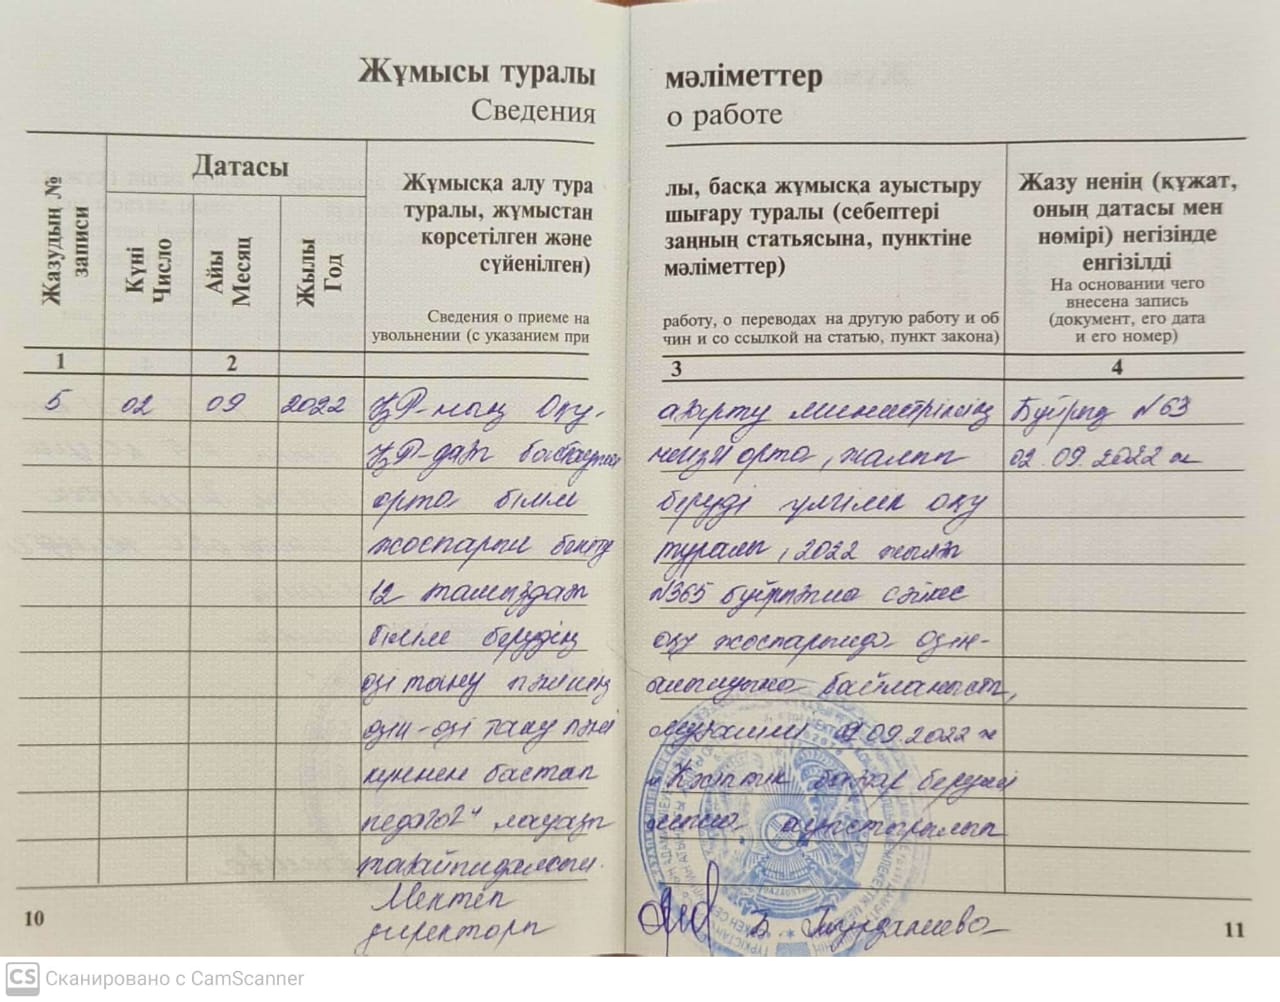 Жұмысы туралы мәліметтер
Сведения о работе
Жазудың №
записи
Датасы
Күні
Число
Айы
Месяц
Жылы
Год
Жұмысқа алу тура
туралы, жұмыстан
көрсетілген және
сүйенілген)
Сведения о приеме на
увольнении (с указанием при
лы, басқа жұмысқа ауыстыру
шығару туралы (себептері
заңның статьясына, пунктіне
мәліметтер)
работу, о переводах на другую работу и об
чин и со ссылкой на статью, пункт закона)
Жазу ненің (құжат,
оның датасы мен
нөмірі) негізінде
енгізілді
На основании чего
внесена запись
(документ, его дата
и его номер)
1 2 3 4
5 02 09 2022 ҚР-ның Оқу- ағарту министрлігінің Бұйрық №63
ҚР-дағы бастауыш негізгі орта, жалпы 02.09.2022 ж
орта білім беруді үлгілік оқу
жоспарын бекіту туралы, 2022 жылғы
12 тамыздағы №365 бұйрығына сәйкес
білім берудің оқу жоспарында өзін-
өзі тану пәнінің байланысты,
өзін-өзі тану пәні мұғалімі 09.2022 ж
күннен бастап беруші
педагог" лауазымына ауыстырылып
тағайындалсын.
Мектеп
директоры Тұрдалиева
10
11
CS Сканировано с CamScanner